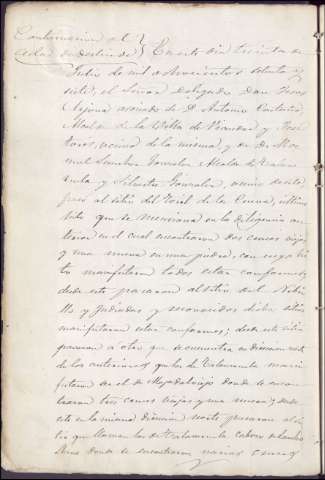 Continuacion al
acta de deslinde } En este dia treinta de
Julio de mil ochocientos setenta y
siete, el Señor Delegado Don Jorge
asociado de D. Antonio
Alcalde de la Villa de y
vecinos de la misma, y de D. Ma-
nuel Sanchez Gonzalez Alcalde de Valaman-
ca y Silvestre Gonzalez, vecino de ella,
pasó al sitio del de la Cueva, ultimo
sitio que se menciona en la diligencia an-
terior en el cual encontraron dos cruces viejas
y una nueva en una piedra, con cuyo hi-
to manifestaron todos estar conformes,
desde este pasaron al sitio del
y y reconocidos dichos sitios
manifestaron estar conformes; desde este sitio
pasaron a otro que se encuentra en direccion norte
de los anteriores que los de manifes-
taron ser el de donde se encon-
traron tres cruces viejas y una nueva; y desde
este en la misma direccion norte pasaron al si-
tio que llaman los de Cabeza de
donde se encontraron varias cruces